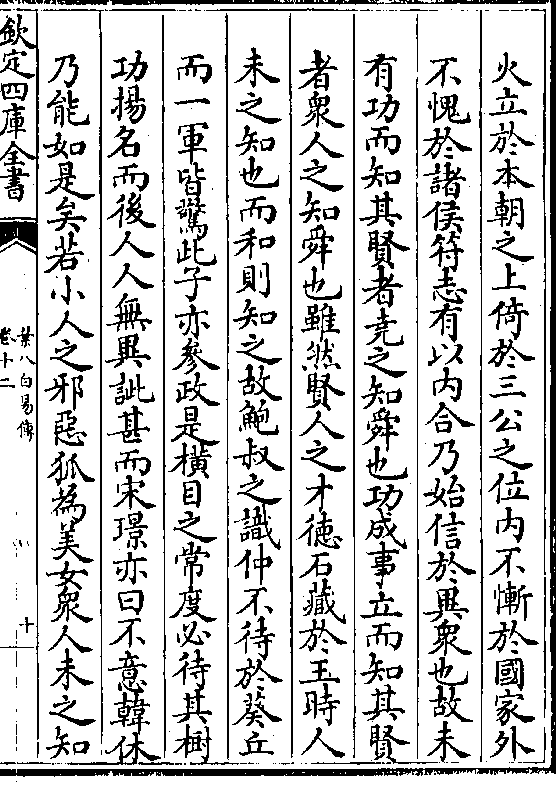 火立於本朝之上倚於三公之位内不慚於國家外
不愧於諸侯符志有以内合乃始信於異衆也故未
有功而知其賢者堯之知舜也功成事立而知其賢
者衆人之知舜也雖然賢人之才徳石藏於玉時人
未之知也而和則知之故鮑叔之識仲不待於葵丘
而一軍皆驚此子亦參政是横目之常度必待其樹
功揚名而後人人無異訿甚而宋璟亦曰不意韓休
乃能如是矣若小人之邪惡狐為美女衆人未之知
欽定四庫全書
葉八白易傳
卷十二
十